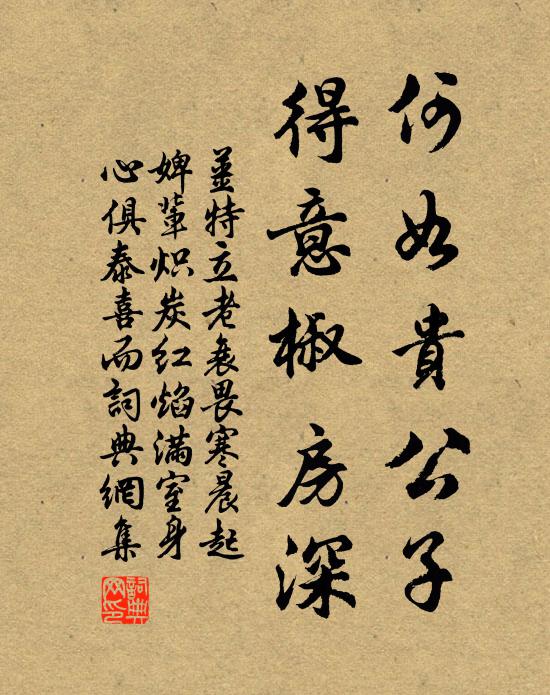 何如貴公子
得意椒房深
姜特立老衰畏寒晨起
婢輩炽炭红焰滿室身
心俱泰喜而詞典網集
詞典
网印